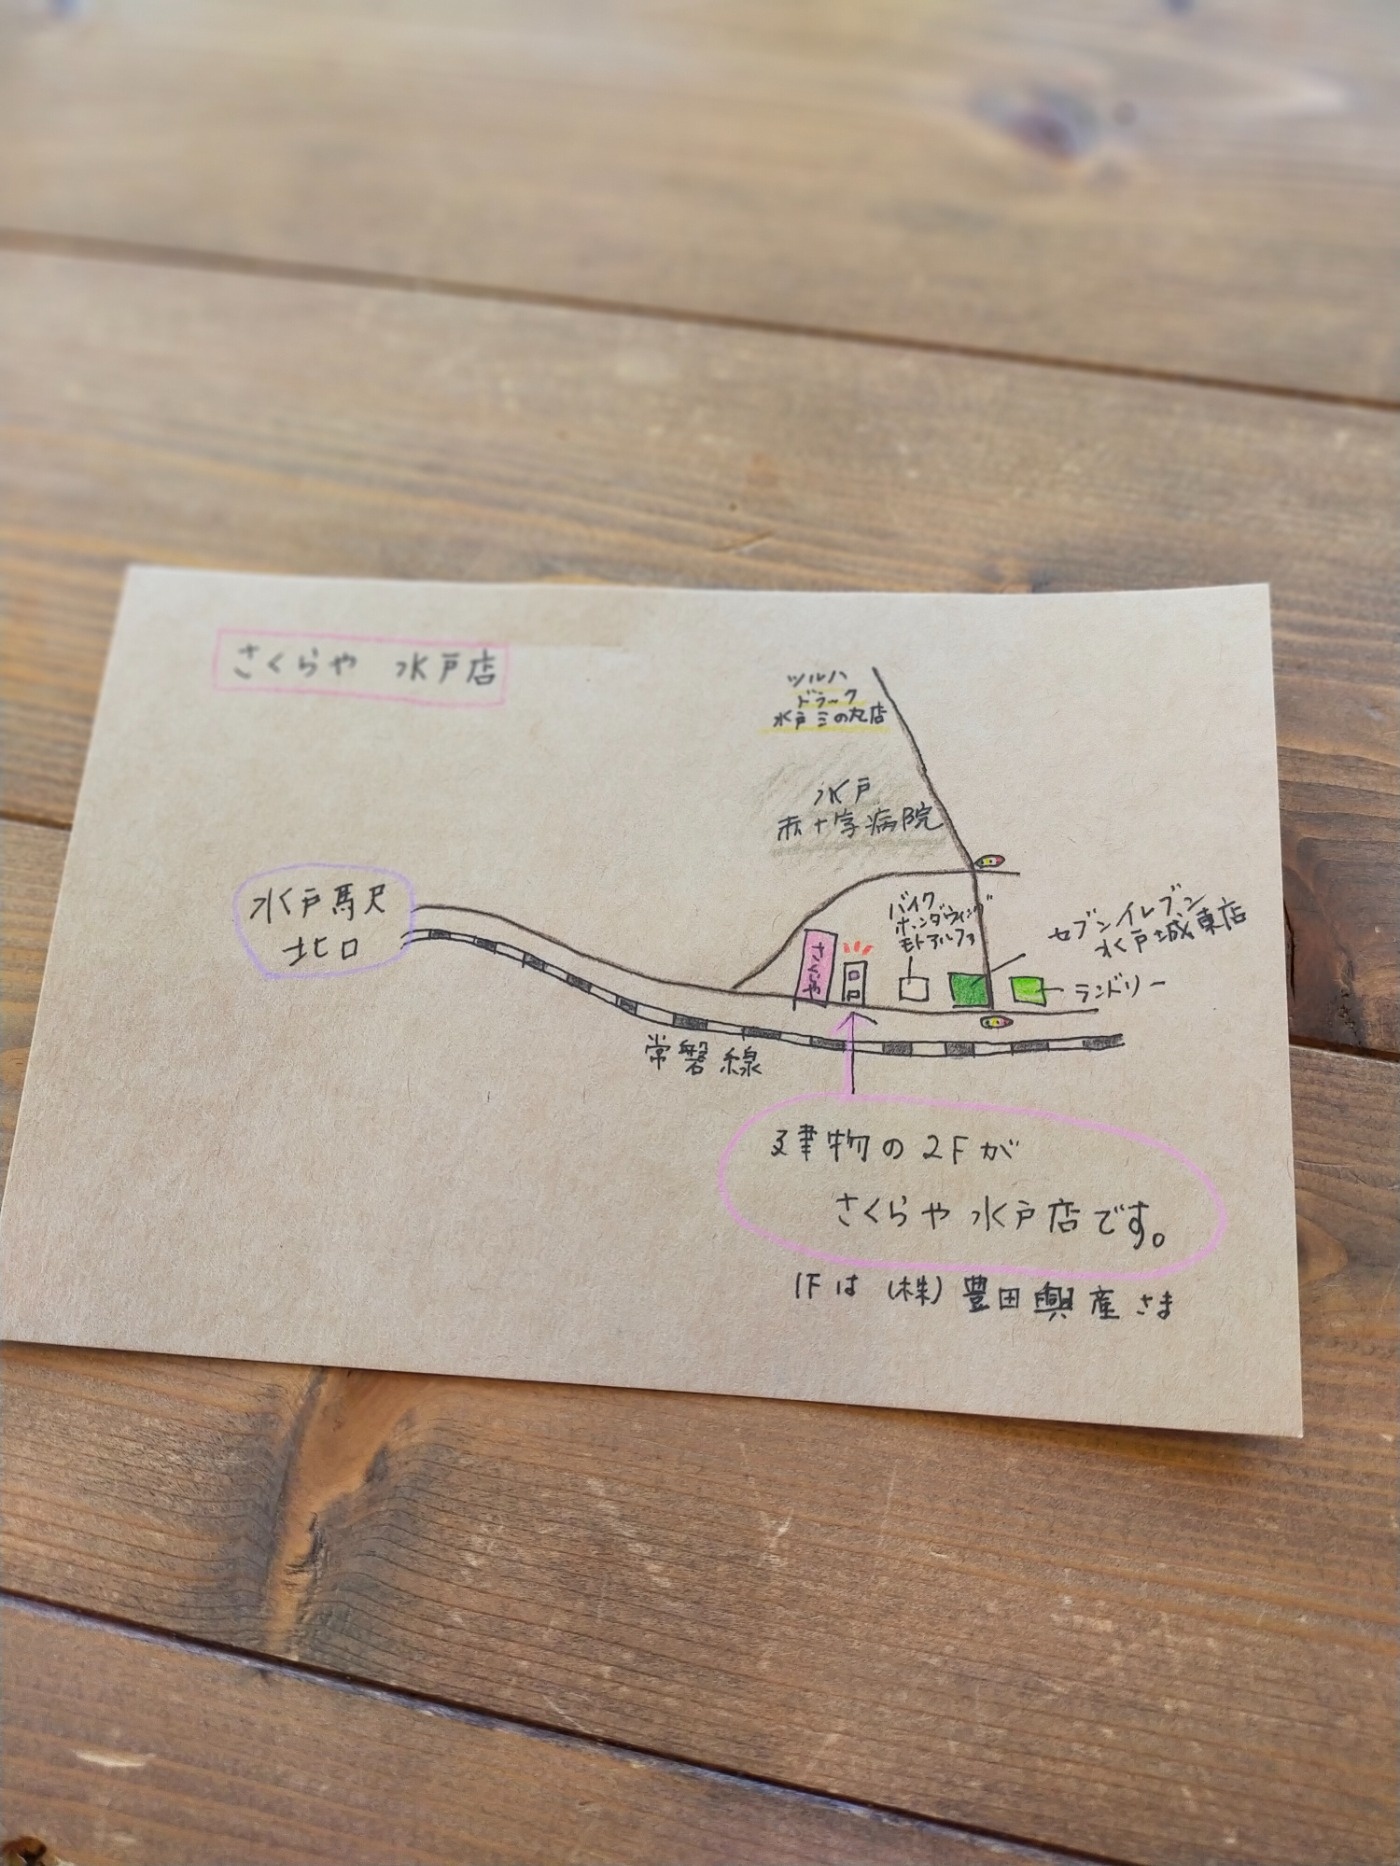 さくらや 水戸店
ツルハ
ドラッグ
水戸三の丸店
水戸
赤十字病院
水戸駅
北口
バイク
ホンダウィング
モトアルファ
セブンイレブン
水戸城東店
さくらや
ランドリー
常磐線
建物の2Fが
さくらや 水戸店です。
1Fは (株)豊田興産さま